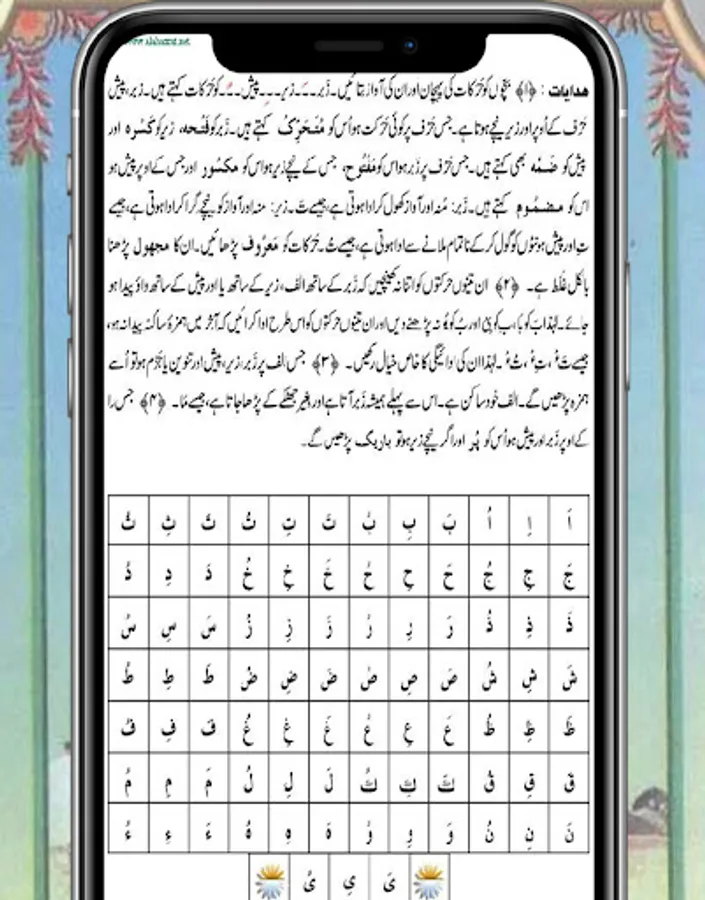 هدایات : ﴿۱﴾ بچّوں کو حَرَکات کی پہچان اور ان کی آواز بتائیں۔ زَبر ـَـ زیر ـِـ پیش ـُـ کو حَرَکات کہتے ہیں۔ زبر، پیش
حَرْف کے اُوپر اور زیر نیچے ہوتا ہے۔ جس حَرْف پر کوئی حَرَکت ہو اُس کو مُتَحَرِّک کہتے ہیں۔ زَبر کو فَتْحہ، زیر کو کَسْرہ اور
پیش کو ضَمّہ بھی کہتے ہیں۔ جس حَرْف پر زَبر ہو اس کو مَفْتُوح، جس کے نیچے زیر ہو اس کو مکسُور اور جس کے اوپر پیش ہو
اس کو مضمُوم کہتے ہیں۔ زَبر: مُنہ اور آواز کھول کر ادا ہوتی ہے، جیسے تَ۔ زیر: منہ اور آواز کو نیچے گرا کر ادا ہوتی ہے، جیسے
تِ اور پیش ہونٹوں کو گول کر کے ناتمام ملانے سے ادا ہوتی ہے، جیسے تُ۔ حَرَکات کو مَعرُوف پڑھائیں۔ ان کا مجہول پڑھنا
بالکل غَلَط ہے۔ ﴿۲﴾ ان تینوں حرکتوں کو اتنا نہ کھینچیں کہ زَبر کے ساتھ الف، زیر کے ساتھ یا اور پیش کے ساتھ واؤ پیدا ہو
جائے۔ لہٰذا بَ کو با، بِ کو بِی اور بُ کو بُو نہ پڑھنے دیں اور ان تینوں حرکتوں کو اس طرح ادا کرائیں کہ آخر میں ہمزۂ ساکنہ پیدا نہ ہو،
جیسے تَ ءْ، تِ ءْ، تُ ءْ۔ لہٰذا ان کی ادائیگی کا خاص خیال رکھیں۔ ﴿۳﴾ جس الف پر زَبر، زیر، پیش اور تنوین یا جَزْم ہو تو اُسے
ہمزہ پڑھیں گے۔ الف خود ساکن ہے۔ اس سے پہلے ہمیشہ زَبر آتا ہے اور بغیر جھٹکے کے پڑھا جاتا ہے، جیسے مَا۔ ﴿۴﴾ جس را
کے اوپر زَبر اور پیش ہو اُس کو پُر اور اگر نیچے زیر ہو تو باریک پڑھیں گے۔
اَ اِ اُ بَ بِ بُ تَ تِ تُ ثَ ثِ ثُ
جَ جِ جُ حَ حِ حُ خَ خِ خُ دَ دِ دُ
ذَ ذِ ذُ رَ رِ رُ زَ زِ زُ سَ سِ سُ
شَ شِ شُ صَ صِ صُ ضَ ضِ ضُ طَ طِ طُ
ظَ ظِ ظُ عَ عِ عُ غَ غِ غُ فَ فِ فُ
قَ قِ قُ كَ كِ كُ لَ لِ لُ مَ مِ مُ
نَ نِ نُ وَ وِ وُ هَ هِ هُ ءَ ءِ ءُ
یَ یِ یُ